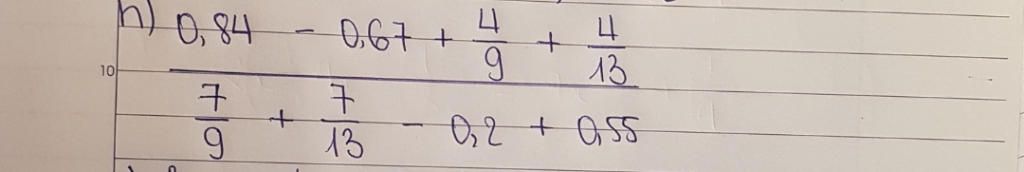 h) 0,84 - 0,67 + 4/9 + 4/13
10
7/9 + 7/13 - 0,2 + 0,55